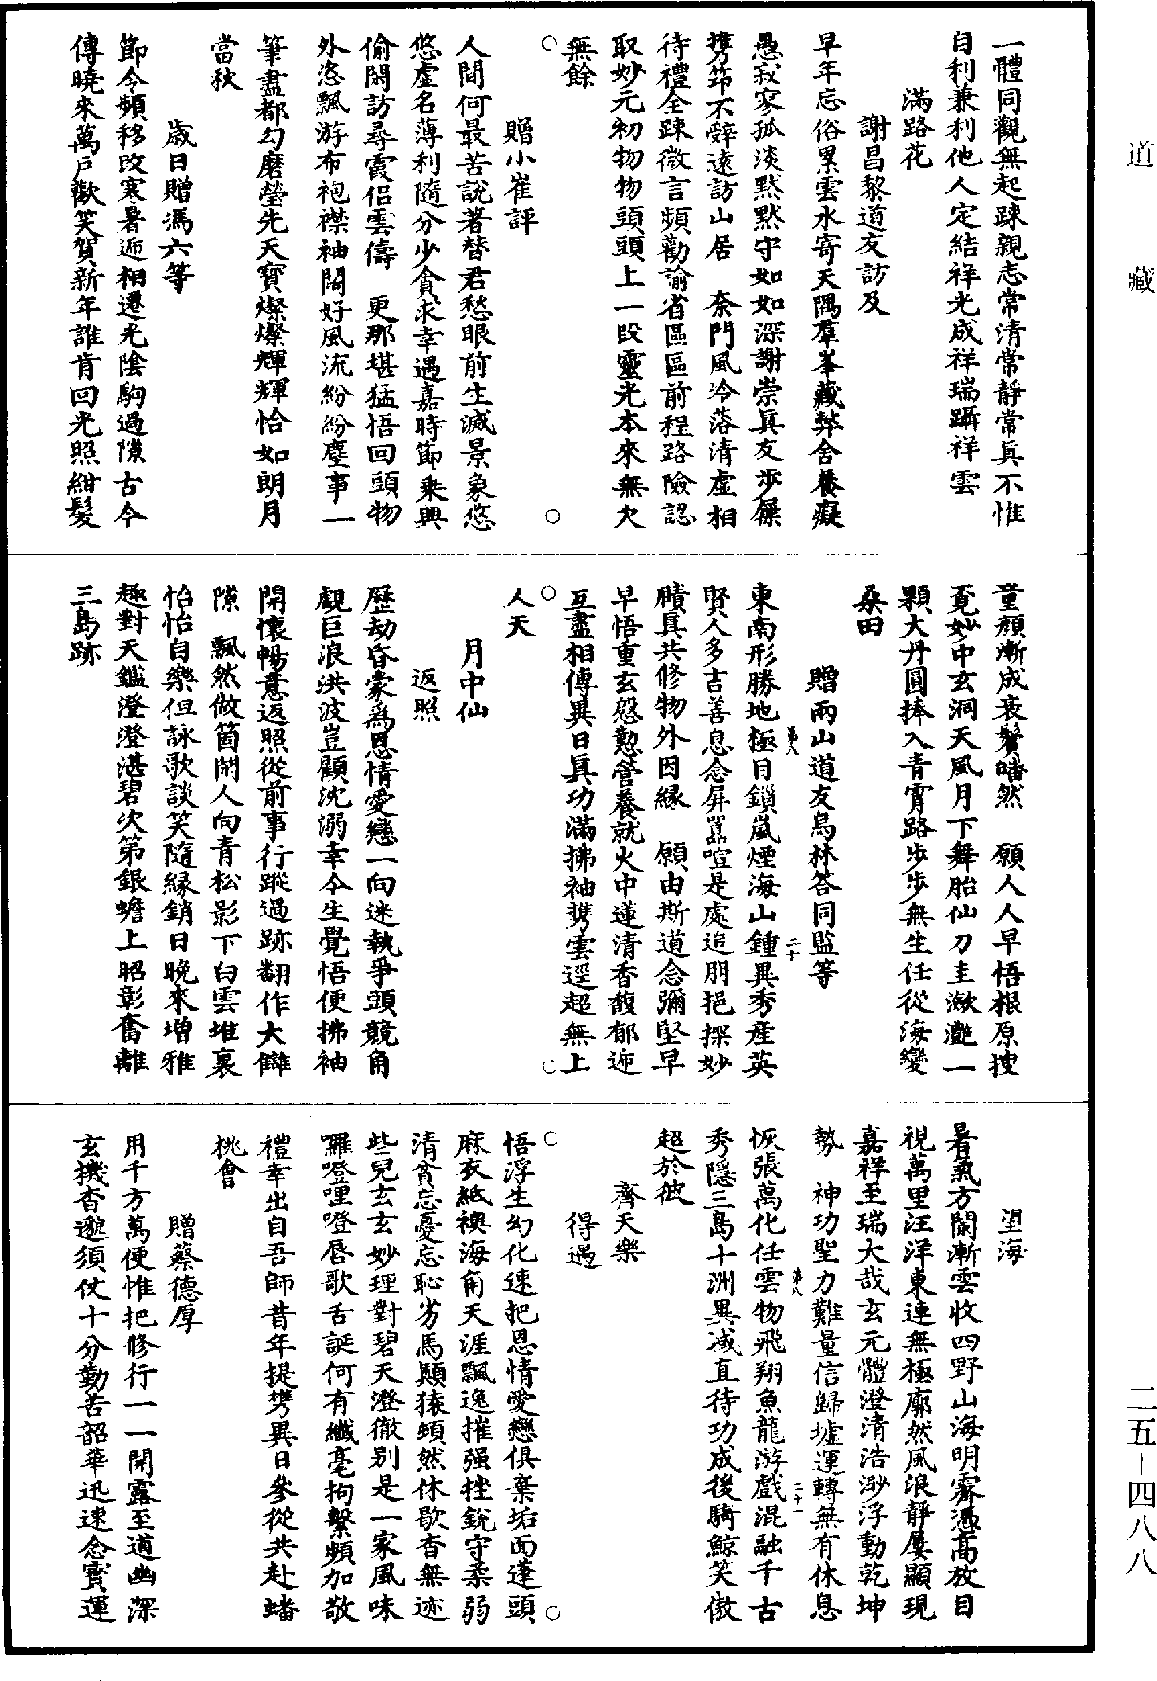 道藏
一體同觀無起踈親志常清常靜常真不惟
自利兼利他人定結祥光成祥瑞躡祥雲
滿路花
謝昌黎道友訪及
早年忘俗累雲水寄天隅羣峯藏弊舍養癡
愚寂寥孤淡默默守如如深謝崇真友步屧
携笻不辭遠訪山居　奈門風冷落清虛相
待禮全踈微言頻勸諭省區區前程路險認
取妙元初物物頭頭上一段靈光本來無欠
無餘
贈小崔評
人間何最苦說著替君愁眼前生滅景象悠
悠虛名薄利隨分少貪求幸遇嘉時節乘興
偷閑訪尋霞侶雲儔　更那堪猛悟回頭物
外恣飄游布袍襟袖闊好風流紛紛塵事一
筆盡都勾磨瑩先天寶燦燦輝輝恰如朗月
當秋
歲日贈馮六等
節令頻移改寒暑迤相遷光陰駒過隙古今
傳曉來萬戶歡笑賀新年誰肯回光照紺髮
童顏漸成衰鬢皤然　願人人早悟根原搜
覓妙中玄洞天風月下舞胎仙刀圭瀲灩一
顆大丹圓捧入青霄路步步無生任從海變
桑田
贈兩山道友烏林答同監等
東南形勝地極目鎖嵐煙海山鍾異秀產英
賢人多吉善息念屏囂喧是處追朋挹探妙
賾真共修物外因緣　願由斯道念彌堅早
早悟重玄慇懃營養就火中蓮清香馥郁迤
互盡相傳異日真功滿拂袖携雲逕超無上
人天
月中仙
返照
歷劫昏蒙爲恩情愛戀一向迷執爭頭競角
觀巨浪洪波豈顧沈溺幸今生覺悟便拂袖
開懷暢意返照從前事行蹤過跡翻作大讎
隙　飄然做箇閑人向青松影下白雲堆裏
怡怡自樂但詠歌談笑隨緣銷日晚來增雅
趣對天鑑澄澄湛碧次第銀蟾上昭彰奮離
三島跡
望海
暑氣方闌漸雲收四野山海明霽憑高放目
視萬里汪洋東連無極廓然風浪靜屢顯現
嘉祥至瑞大哉玄元體澄清浩渺浮動乾坤
勢　神功聖力難量信歸墟運轉無有休息
恢張萬化任雲物飛翔魚龍游戲混融千古
秀隱三島十洲異减直待功成後騎鯨笑傲
超於彼
齊天樂
得遇
悟浮生幻化速把恩情愛戀俱棄垢面蓬頭
麻衣紙襖海角天涯飄逸摧强挫銳守柔弱
清貧忘憂忘恥劣馬顛猿頓然休歇杳無迹
些兒玄玄妙理對碧天澄徹别是一家風味
囉噔哩噔唇歌舌誕何有纖毫拘繫頻加敬
禮幸出自吾師昔年提㩗異日參從共赴蟠
桃會
贈蔡德厚
用千方萬便惟把修行一一開露至道幽深
玄機杳邈須仗十分勤苦韶華迅速念寳運
二五－四八八